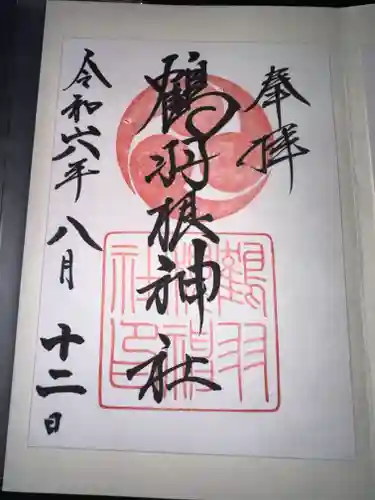 奉拝
鶴羽根神社
令和六年八月十二日
鶴羽
根神
社印